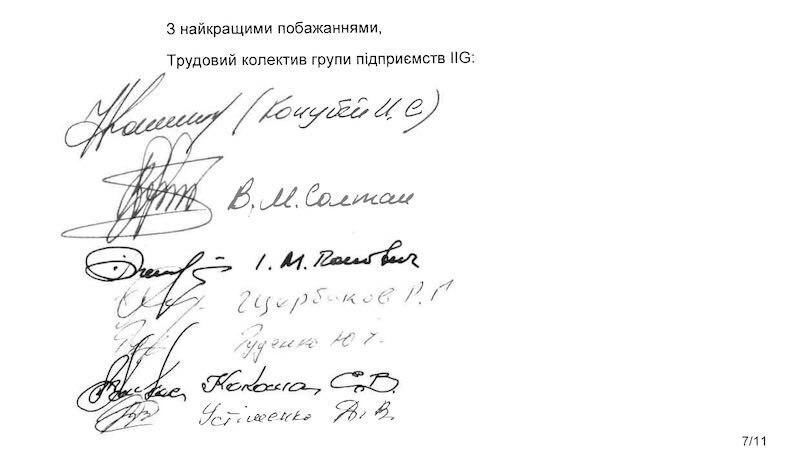 З найкращими побажаннями,
Трудовий колектив групи підприємств IIG:
(Кочубей И. С)
В. М. Солтан
І. М. Попович
Щербиков Р. Г
Руденко Ю
С. В.
Устіменко Д. В.
7/11